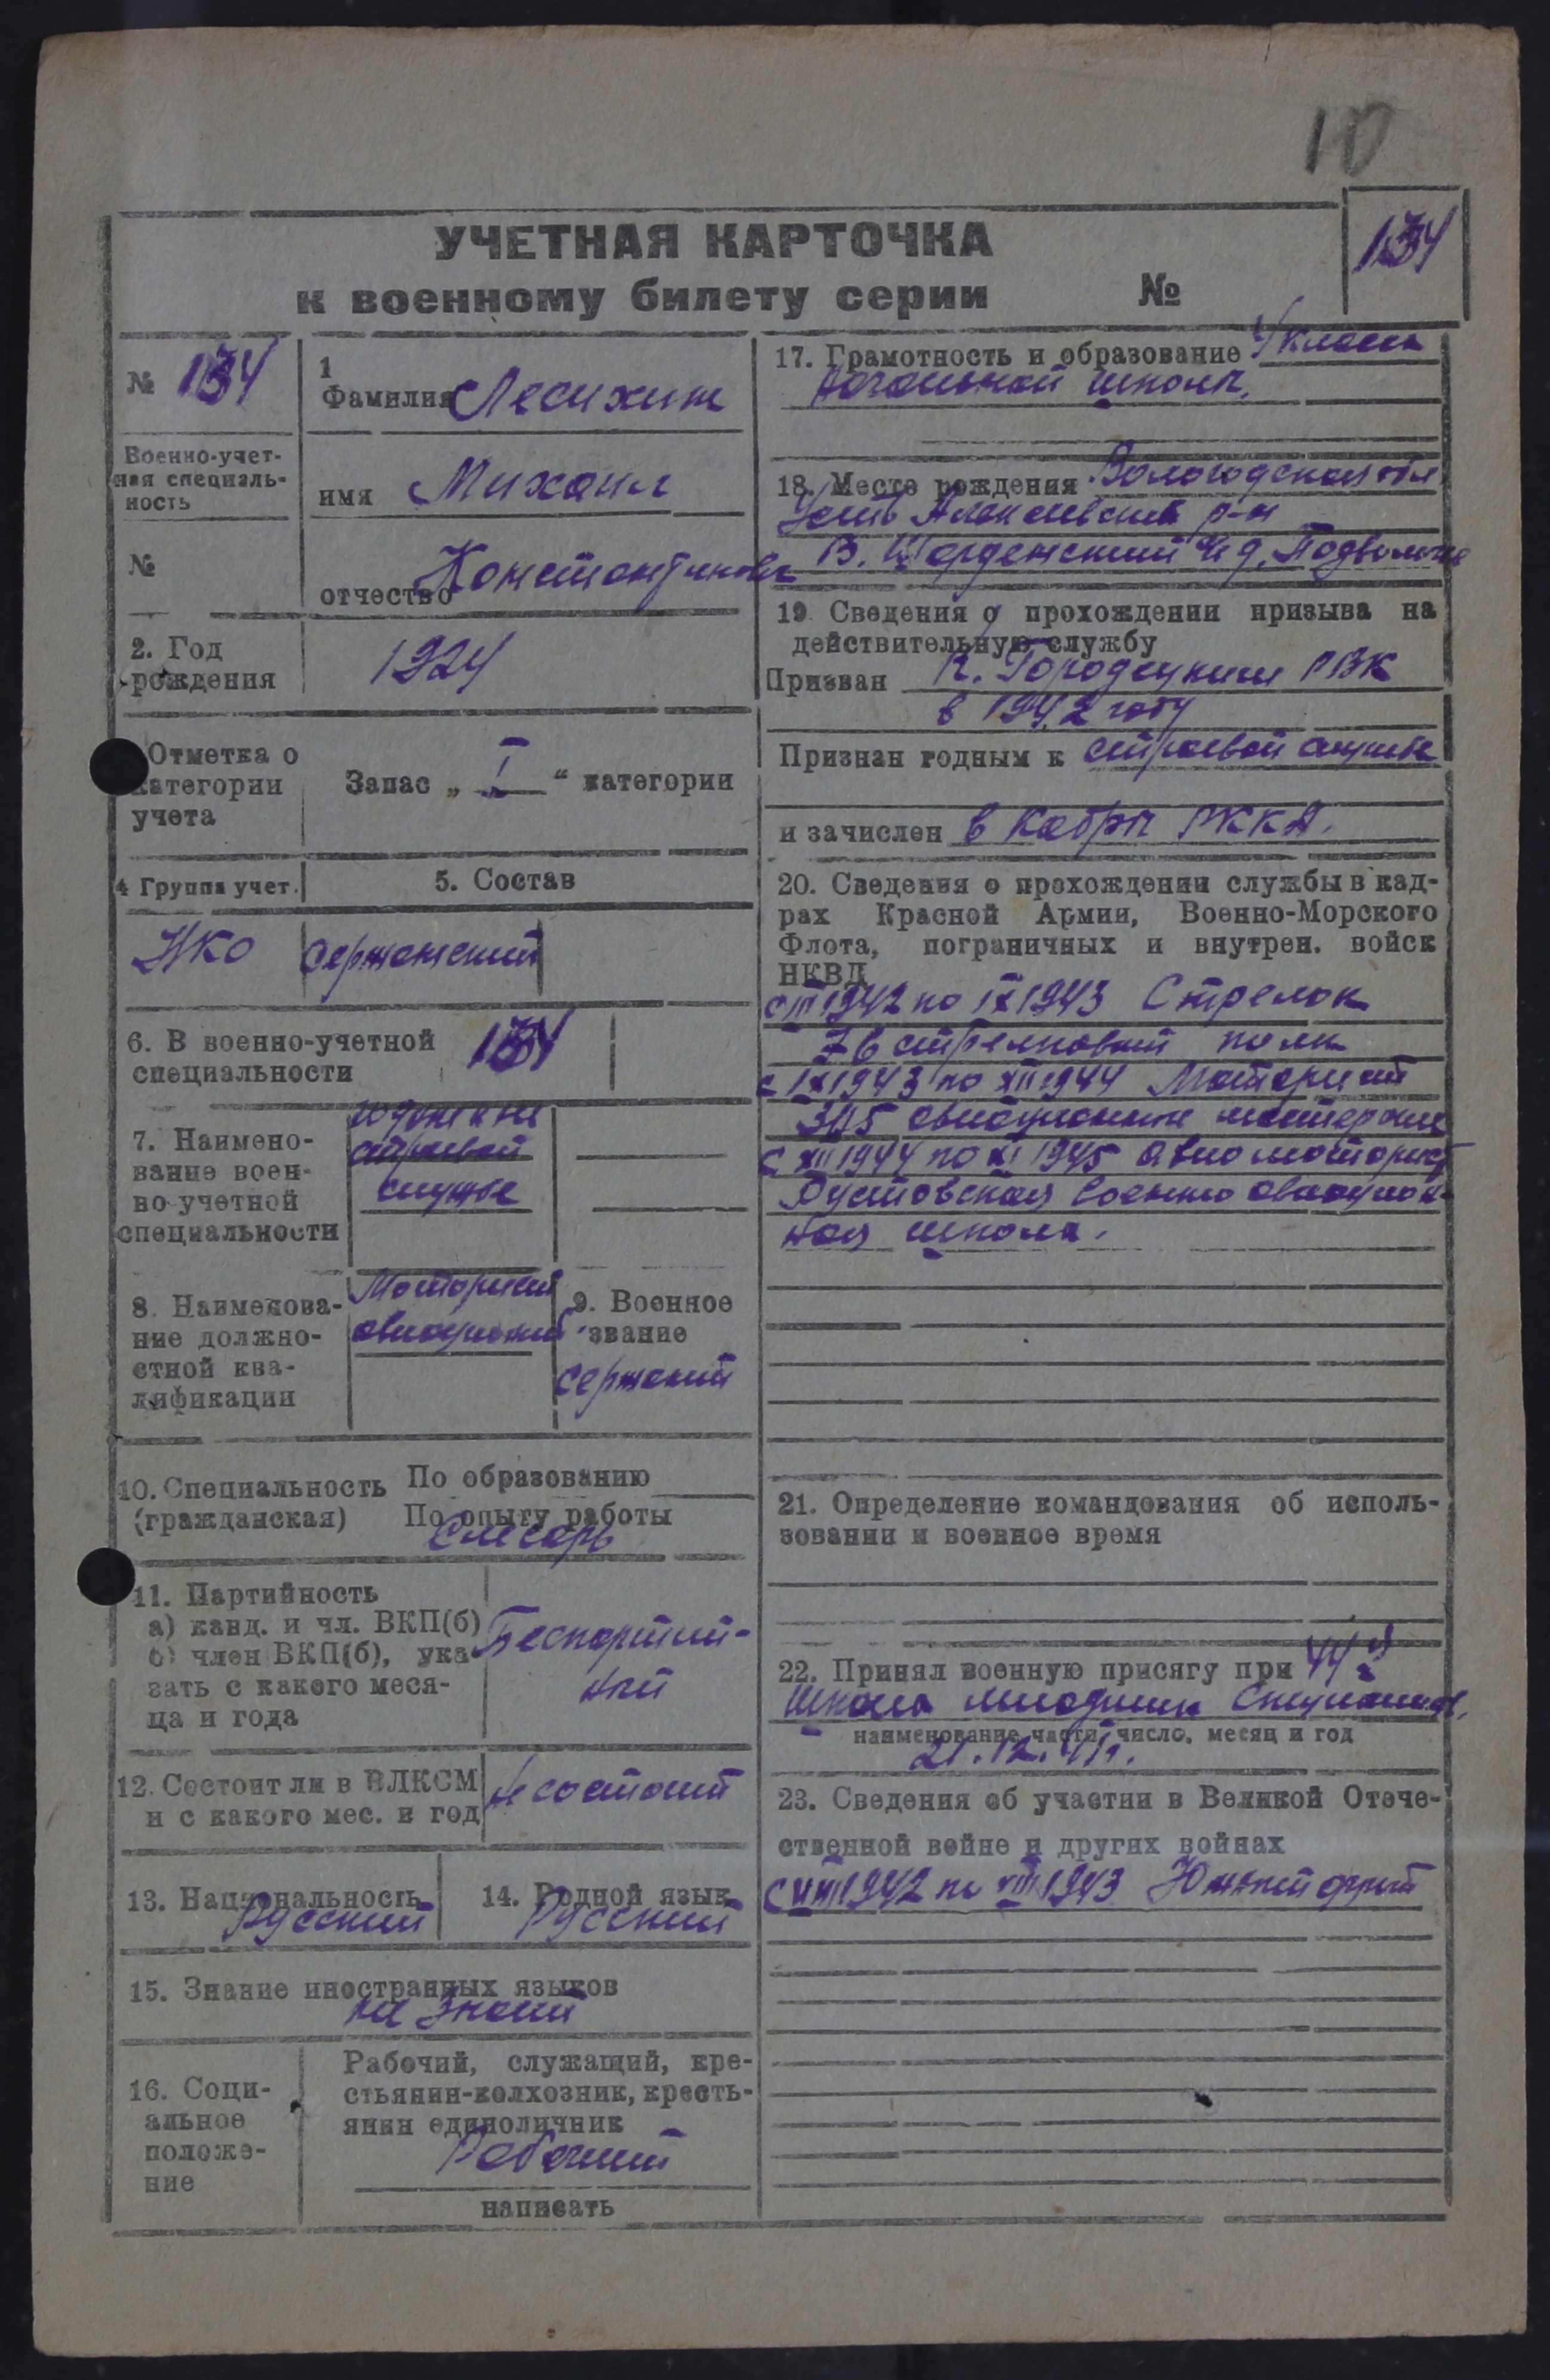 10
УЧЕТНАЯ КАРТОЧКА
к военному билету серии №
134
№ 134
1
Фамилия Лесихин
Военно-учет-
ная специаль-
ность
имя Михаил
№
отчество Константинович
2. Год
рождения
1924
Отметка о
категории
учета
Запас „ I “ категории
4 Группа учет.
5. Состав
НКО
сержантский
6. В военно-учетной
специальности
134
7. Наимено-
вание воен-
но-учетной
специальности
годные к не
строевой
службе
8. Наименова-
ние должно-
стной ква-
лификации
Моторист
авиационный
9. Военное
звание
сержант
10. Специальность
(гражданская)
По образованию
По опыту работы
Слесарь
11. Партийность
а) канд. и чл. ВКП(б)
б) член ВКП(б), ука-
зать с какого меся-
ца и года
Беспартий-
ный
12. Состоит ли в ВЛКСМ
и с какого мес. и год
Не состоит
13. Национальность
Русский
14. Родной язык
Русский
15. Знание иностранных языков
не знает
16. Соци-
альное
положе-
ние
Рабочий, служащий, кре-
стьянин-колхозник, кресть-
янин единоличник
Рабочий
написать
17. Грамотность и образование 4 класса
начальной школы.
18. Место рождения Вологодская обл
Усть Алексеевский р-н
В. Шарденгский с/с д.
19 Сведения о прохождении призыва на
действительную службу
Призван К. Городецким РВК
в 1942 году
Признан годным к строевой службе
и зачислен в кадры РККА.
20. Сведения о прохождении службы в кад-
рах Красной Армии, Военно-Морского
Флота, пограничных и внутрен. войск
НКВД
1942 по IX 1943 Стрелок
стрелковый полк
с IX 1943 по XII 1944 Моторист
авиационные мастерские
с XII 1944 по XI 1945 Авиомоторист
военно авиацион-
ная школа.
21. Определение командования об исполь-
зовании и военное время
22. Принял военную присягу при 44 й
школа младших специалистов,
наименование части, число, месяц и год
21.12.
23. Сведения об участии в Великой Отече-
ственной войне и других войнах
с VIII 1942 по VIII 1943 Южный фронт